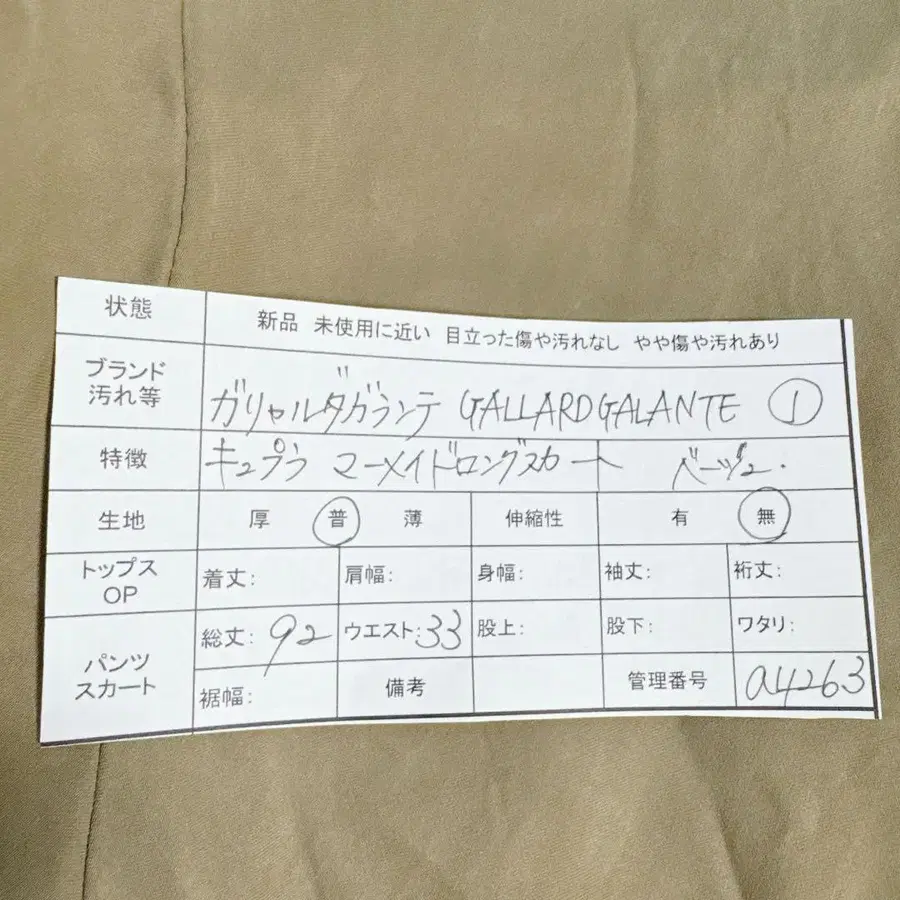 状態 新品 未使用に近い 目立った傷や汚れなし やや傷や汚れあり
ブランド
汚れ等 ガリャルダガランテ GALLARDGALANTE ①
特徴 キュプラ マーメイドロングスカート ベージュ.
生地 厚 普 薄 伸縮性 有 無
トップス
OP 着丈: 肩幅: 身幅: 袖丈: 裄丈:
パンツ
スカート 総丈: 92 ウエスト: 33 股上: 股下: ワタリ:
裾幅: 備考 管理番号 a4263